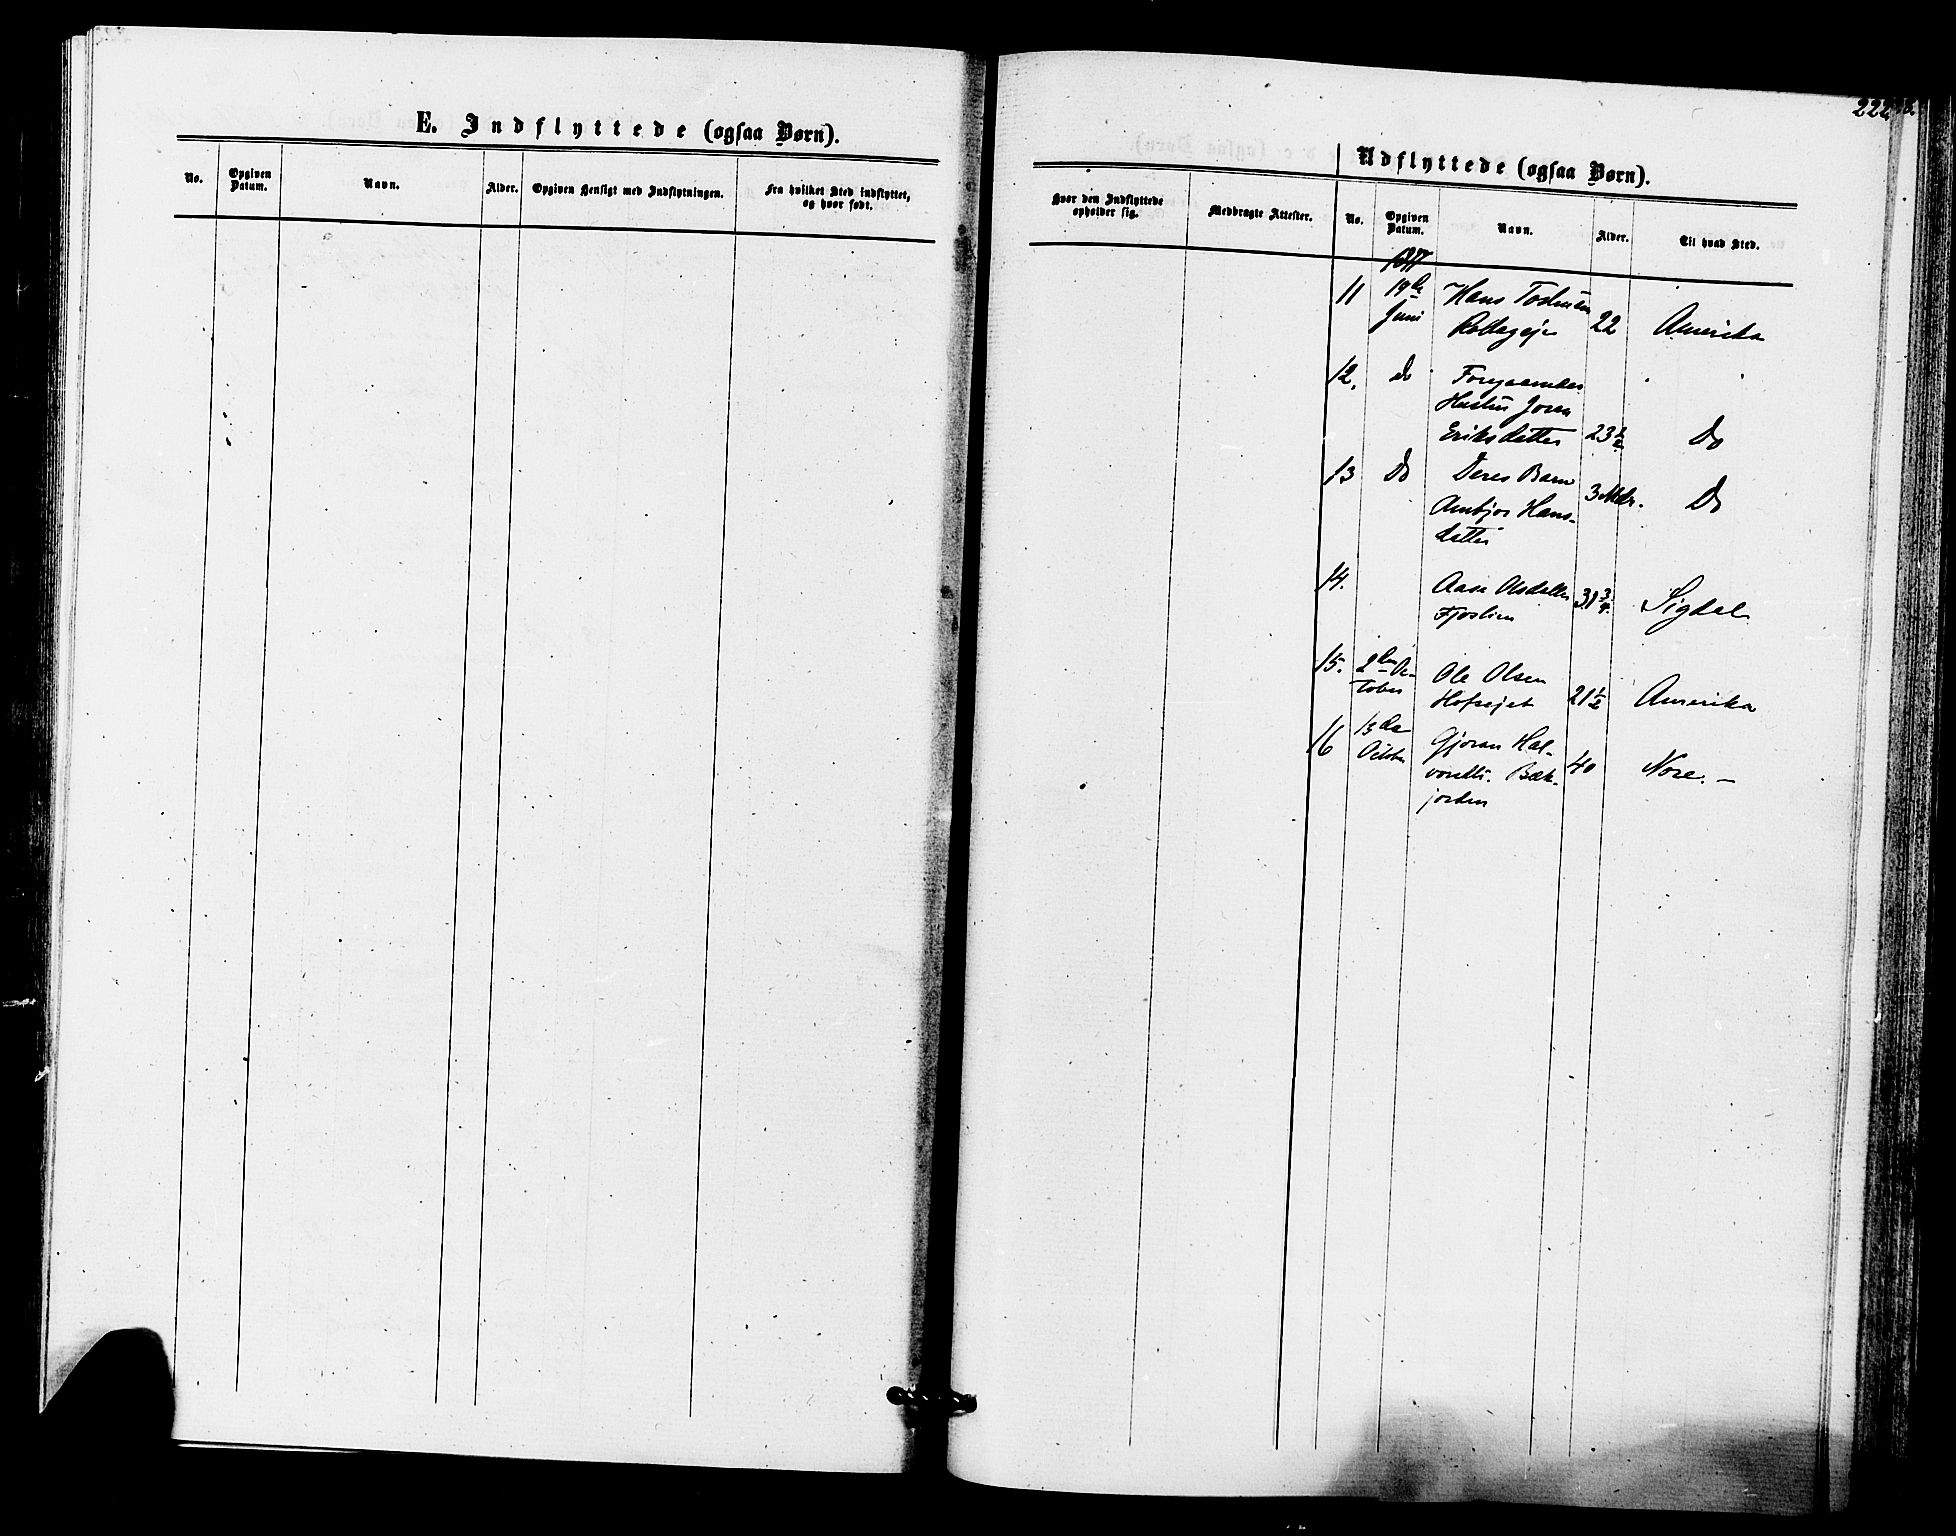 E. Indflyttede (ogsaa Børn).
No.
Opgiven
Datum.
Navn.
Alder.
Opgiven Hensigt med Indflytningen.
Fra hvilket Sted indflyttet,
og hvor født.
222
Udflyttede (ogsaa Børn).
Hvor den Indflyttede
opholder sig.
Medbragte Attester.
No.
Opgiven
Datum.
Navn.
Alder.
Til hvad Sted.
1877
11 19de Hans
Juni 22 Amerika
12. do Foregaaendes
Hustru Joran
Eriksdatter 23½ Do
13 Do Deres Barn
Ambjør Hans- 3 Mdr. Do
datter
14. Aase Olsdatter 31¾ Sigdal
Fjøslien
15. 2den Oc- Ole Olsen
tober 21½ Amerika
16 13de Gjøran Hal-
October vorsdtr. Bæk- 40 Nore. –
jorden